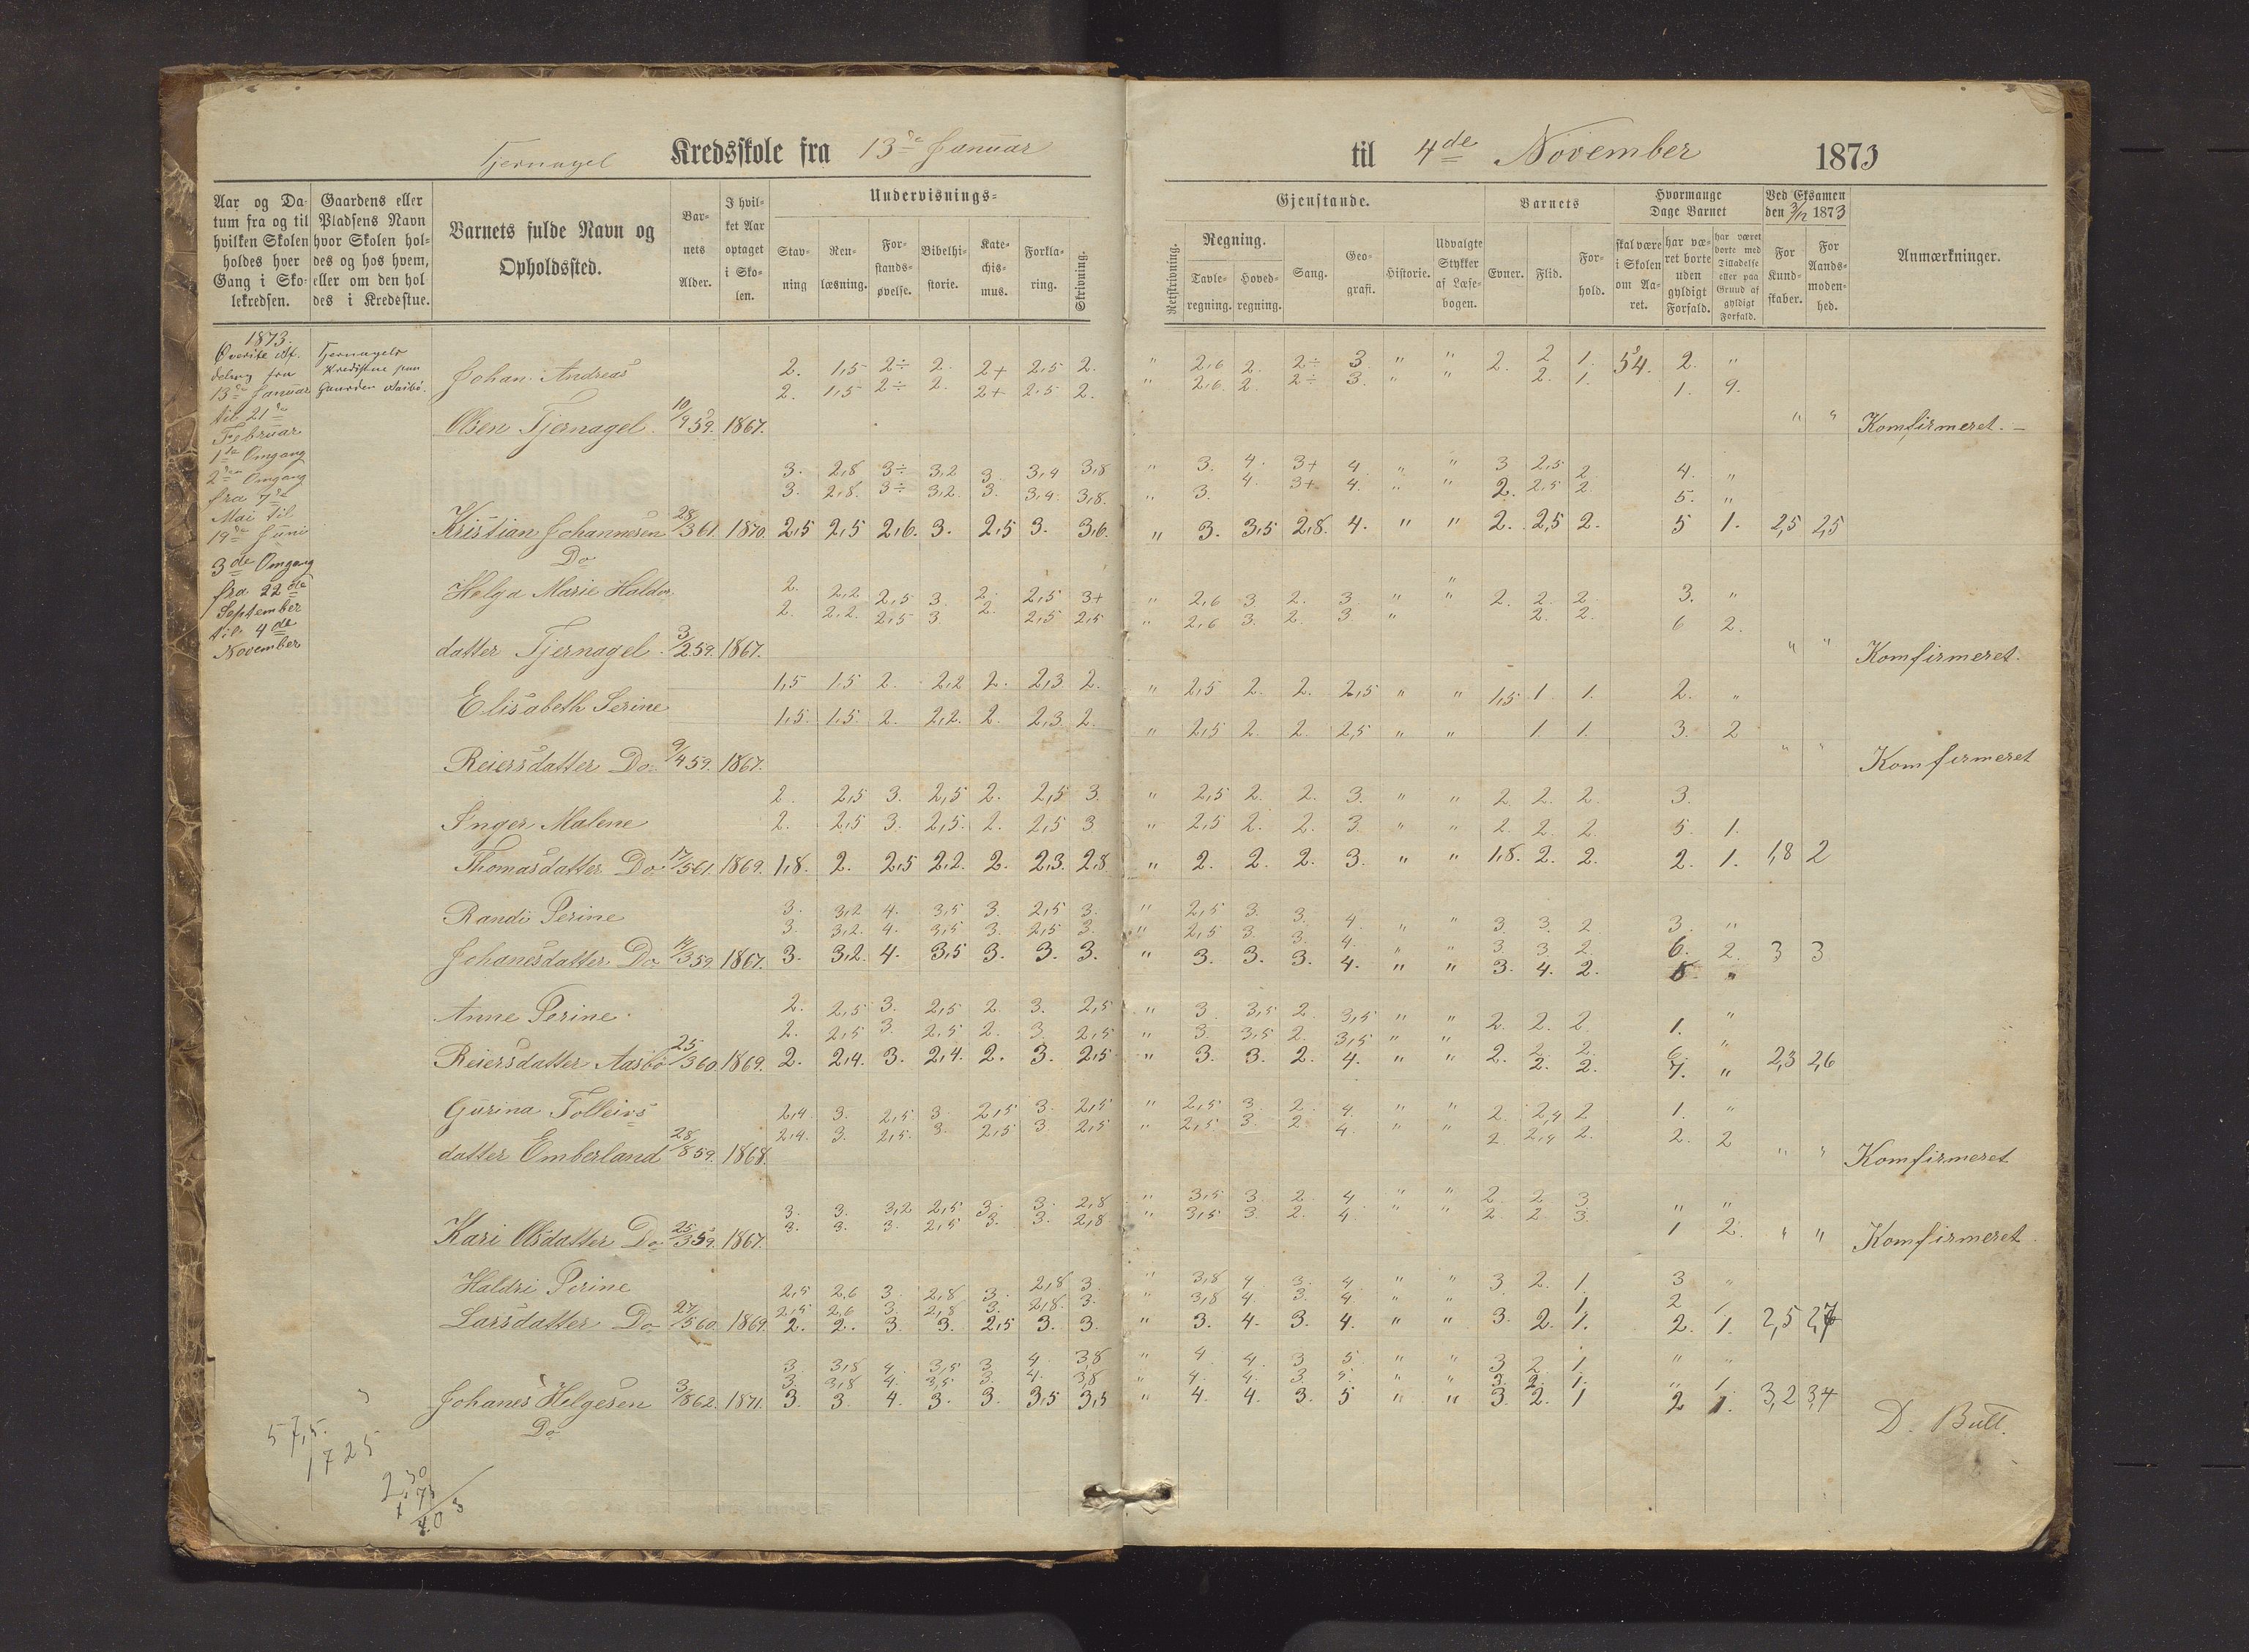 Tjernagel Kredsskole fra 13de Januar til 4de November 1873
Aar og Da-
tum fra og til
hvilken Skolen
holdes hver
Gang i Sko-
lekredsen.
Gaardens eller
Pladsens Navn
hvor Skolen hol-
des og hos hvem,
eller om den hol
des i Kredsstue.
Barnets fulde Navn og
Opholdssted.
Bar-
nets
Alder.
I hvil-
ket Aar
optaget
i Sko-
len.
Undervisnings-
Stav-
ning
Ren-
læsning.
For-
stands-
øvelse.
Bibelhi-
storie.
Kate-
chis-
mus.
Forkla-
ring.
Skrivning.
Gjenstande.
Retskrivning.
Regning.
Tavle-
regning.
Hoved-
regning.
Sang.
Geo-
grafi.
Historie.
Udvalgte
Stykker
af Læse-
bogen.
Barnets
Evner.
Flid.
For-
hold.
Hvormange
Dage Barnet
skal være
i Skolen
om Aa-
ret.
har væ-
ret borte
uden
gyldigt
Forfald.
har været
borte med
Tilladelse
eller paa
Grund af
gyldigt
Forfald.
Ved Eksamen
den 3/12 1873
For
Kund-
skaber.
For
Aands-
moden-
hed.
Anmærkninger.
1873.
deling fra
13de Januar
til 21de
Februar
1ste Omgang
2den Omgang
fra 7de
Mai til
19de Juni
3de Omgang
fra 22de
September
til 4de
November
Tjernagels
Kredsstue paa
Gaarden Aasbø.
Johan Andreas 2. 1,5 2÷ 2. 2+ 2,5 2. " 2,6 2. 2÷ 3. " " 2. 2 1. 54. 2. "
2. 1,5 2÷ 2. 2+ 2,5 2. " 2,6. 2. 2÷ 3. " " 2. 1. 1. 9.
Olsen Tjernagel 10/9 59. 1867. " " Komfirmeret. –
3. 2,8 3÷ 3,2 3. 3,4 3,8 " 3. 4. 3+ 4. " " 3 2,5 2. 4. "
3. 2,8. 3÷ 3,2. 3. 3,4. 3,8. " 3. 4. 3+ 4. " " 2. 2,5 2. 5. "
Kristian Johannesen 28/3 61. 1870. 2,5 2,5 2,6. 3. 2,5 3. 3,6. " 3. 3,5 2,8. 4. " " 2. 2,5 2. 5 1. 2,5 2,5
Do
Helga Marie Haldor 2. 2,2 2,5 3. 2. 2,5 3+ " 2,6 3. 2. 3 " " 2. 2. 2 3. "
2. 2,2. 2,5 3. 2. 2,5 2,5 " 2,6 3. 2. 3. " 2. 2. 6 2.
datter Tjernagel. 3/2 59. 1867. " " Komfirmeret.
1,5 1,5 2. 2,2 2. 2,3 2. " 2,5 2. 2. 2,5 " " 1,5 1. 1. 2. "
Elisabeth Serine
1,5. 1,5. 2. 2,2. 2. 2,3 2. " 2,5 2. 2. 2,5 " " 1. 1. 3. 2
Reiersdatter Do 9/4 59. 1867. " " Komfirmeret
2. 2,5 3. 2,5 2. 2,5 3. " 2,5 2. 2. 3. " " 2. 2. 2. 3.
Inger Malene 2. 2,5 3. 2,5. 2. 2,5 3 " 2,5 2. 2. 3. " " 2. 2. 2. 5. 1.
Thomasdatter Do 17/5 61. 1869. 1,8. 2. 2,5 2,2. 2. 2,3. 2,8. " 2. 2. 2. 3. " " 1,8. 2. 2. 2. 1. 1,8 2
Randi Perine 3. 3,2 4. 3,5 3. 2,5 3. " 2,5 3. 3. 4. " " 3. 3. 2. 3. "
3. 3,2. 4. 3,5 3. 2,5 3. " 2,5 3. 3. 4. " " 3 3. 2. 6. 2.
Johanesdatter Do 14/3 59. 1867. 3. 3,2. 4. 3,5 3. 3. 3. " 3. 3. 3. 4. " " 3. 4. 2. 8. " 3 3
Anne Perine 2. 2,5 3. 2,5 2. 3. 2,5 " 3. 3,5 2. 3,5 " " 2. 2. 2. 1. "
2. 2,5 3. 2,5 2. 3. 2,5 " 3. 3,5 2. 3,5 " " 2. 2. 6. "
Reiersdatter Aasbø 25/3 60. 1869. 2. 2,4. 3. 2,4. 2. 3. 2,5 " 3. 3. 2. 4. " " 2. 2. 2. 7. " 2,3 2,6
Gurina Tolleivs 2,4. 3. 2,5 3 2,5 3. 2,5 " 2,5 3. 2. 4. " " 2. 2,4 2 1. "
2,4. 3. 2,5. 3. 2,5 3. 2,5 " 2,5 3. 2. 4. " " 2. 2,4 2. 2. 2
datter Emberland 28/8 59. 1868. " " Komfirmeret
3. 3. 3,2 2,5 3. 3. 2,8 " 3,5 3. 2. 4 " " 2. 2 3 " "
3. 3. 3. 2,5 3. 3. 2,8 " 3,5 3. 2. 4. " " 2. 2 3. 1 2.
Kari Olsdatter Do 25/3 59. 1867. " " Komfirmeret.
Haldri Perine 2,5 2,6 3. 2,8 3. 2,8 3. " 3,8 4. 3. 4. " " 3. 2. 1. 3 "
2,5 2,6 3. 2,8 3. 2,8. 3. " 3,8 4. 3. 4. " " 1. 2 1
Larsdatter Do 27/5 60. 1869. 2. 2. 3. 3. 2,5 3. 3. " 3. 4. 3. 4. " " 3. 2. 1. 2. 1. 2,5 2,7
3. 3,8 4. 3,5 3. 4. 3,8 " 4. 4. 3 5. " " 3 2. 1. " "
3. 3,8 4. 3,5 3. 4. 3,8 " 4. 4. 3. 5. " " 3. 2. 1. " 1
Johanes Helgesen 3/8 62. 1871. 3. 3. 4. 3. 3. 3,5 3,5 " 4. 4. 3. 5 " " 3. 2. 1 2 1. 3,2 3,4
Do
D. Bull.
57,5.
1725